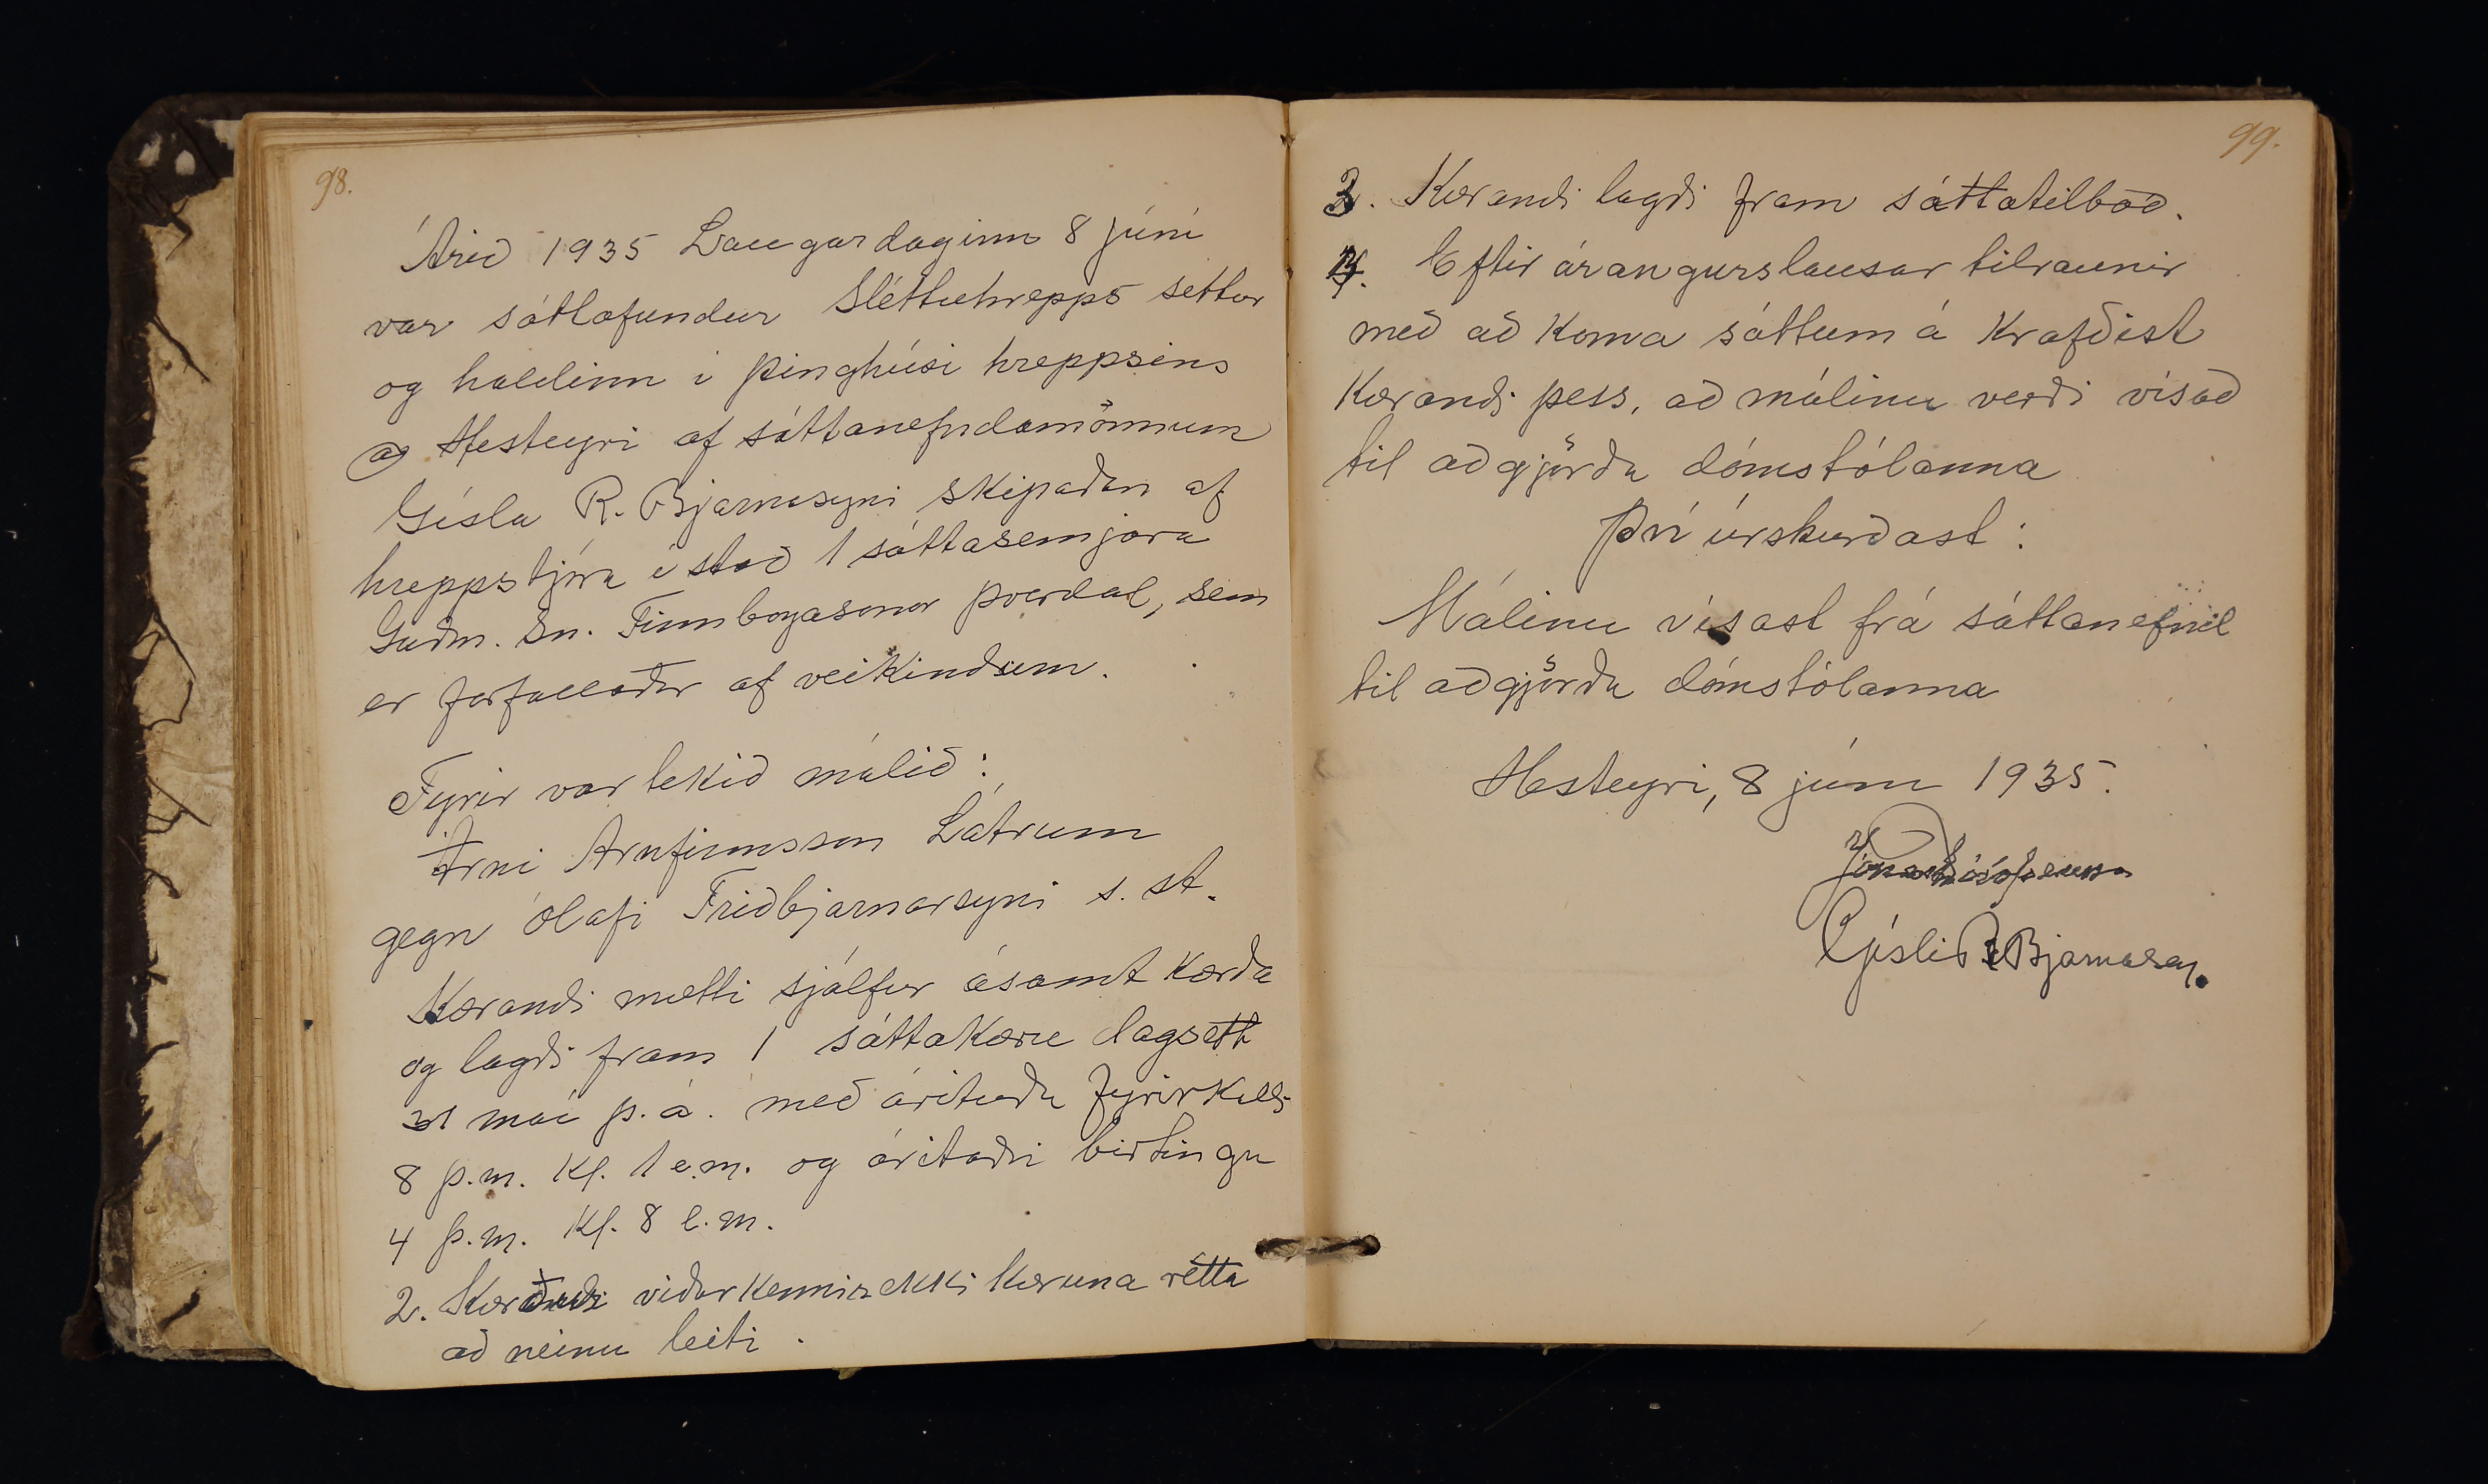 98.
Árið 1935 Laugardaginn 8 júní
var sáttafundur Sléttuhrepps settur
og haldinn í þinghúsi hreppsins
að Hesteyri af sáttanefndamönnum
Gísla R. Bjarnasyni skipaðan af
hreppstjóra í stað 1 sáttasemjara
Guðm. Sn. Finnbogasonar Þverdal, sem
er forfallaður af veikindum.
Fyrir var tekið málið:
Árni Arnfinnsson Látrum
gegn Ólafi Friðbjarnarsyni s. st.
Kærandi mætti sjálfur ásamt kærða
og lagði fram 1 sáttakæru dagsett
31 maí þ. á. með árituðu fyrirkalli
8 þ.m. kl. 1 e.m. og áritaðri birtingu
4 þ.m. kl. 8 e.m.
2. viðurkennir ekki kæruna rétta
að neinu leiti.
99.
3. Kærandi lagði fram sáttatilboð.
4. Eftir árangurslausar tilraunir
með að koma sáttum á krafðist
Kærandi þess, að málinu verði vísað
til aðgjörða dómstólanna
Því úrskurðast:
Málinu vísast frá sáttanefnd
til aðgjörða dómstólanna
Hesteyri, 8 júní 1935.
Gísli R Bjarnason.